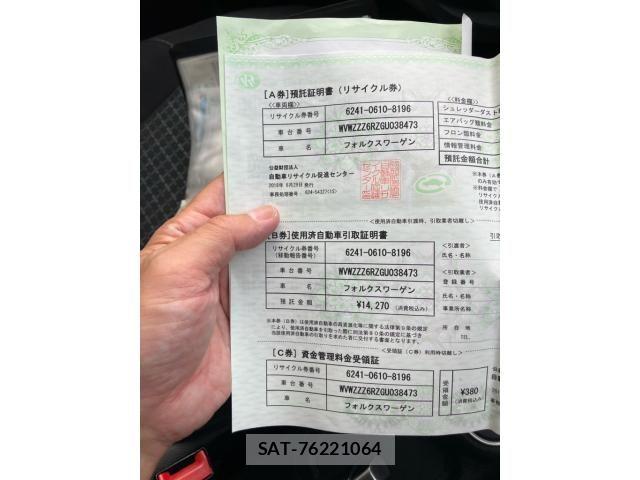 [A券]預託証明書(リサイクル券)
<<車両欄>>
リサイクル券番号 6241-0610-8196
車台番号 WVWZZZ6RZGU038473
車名 フォルクスワーゲン
<<料金欄>>
シュレッダーダスト
エアバッグ類料金
フロン類料金
情報管理料金
預託金額合計
公益財団法人
自動車リサイクル促進センター
<使用済自動車引渡時、引取業者切離し>
[B券]使用済自動車引取証明書
リサイクル券番号
(移動報告番号) 6241-0610-8196
車台番号 WVWZZZ6RZGU038473
車名 フォルクスワーゲン
預託金額 ¥14,270 (消費税込み)
<引渡者>
氏名・名称
<引取業者>
登録番号
氏名・名称
事業所名称
所在地
TEL
<受領証(C券)利用時切離し>
[C券]資金管理料金受領証
リサイクル券番号 6241-0610-8196
車台番号 WVWZZZ6RZGU038473
車名 フォルクスワーゲン
受領金額 ¥380
(消費税込み)
SAT-76221064